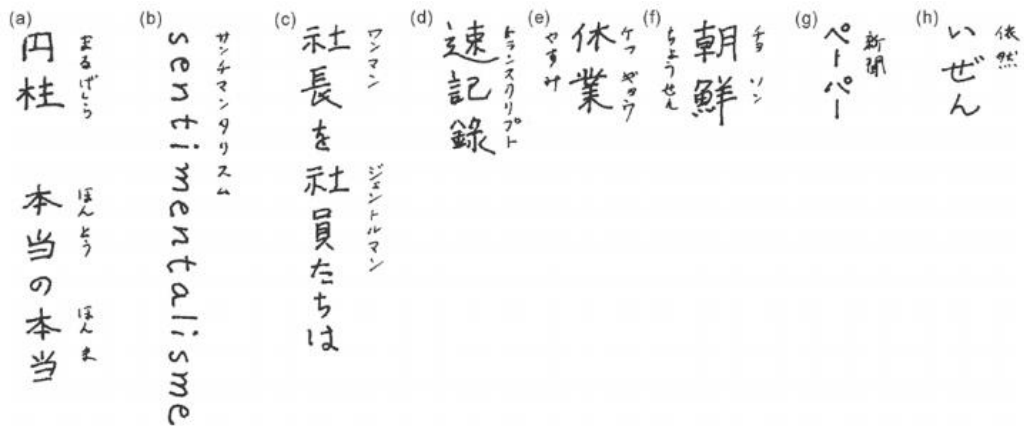 (a)
円柱
まるばしら
本当の本当
ほんとう
ほんま
(b)
sentimentalisme
サンチマンタリスム
(c)
社長を社員たちは
ワンマン
ジェントルマン
(d)
速記録
トランスクリプト
(e)
休業
やすみ
(f)
朝鮮
チョ ソン
ちょうせん
(g)
ペーパー
新聞
(h)
いぜん
依然